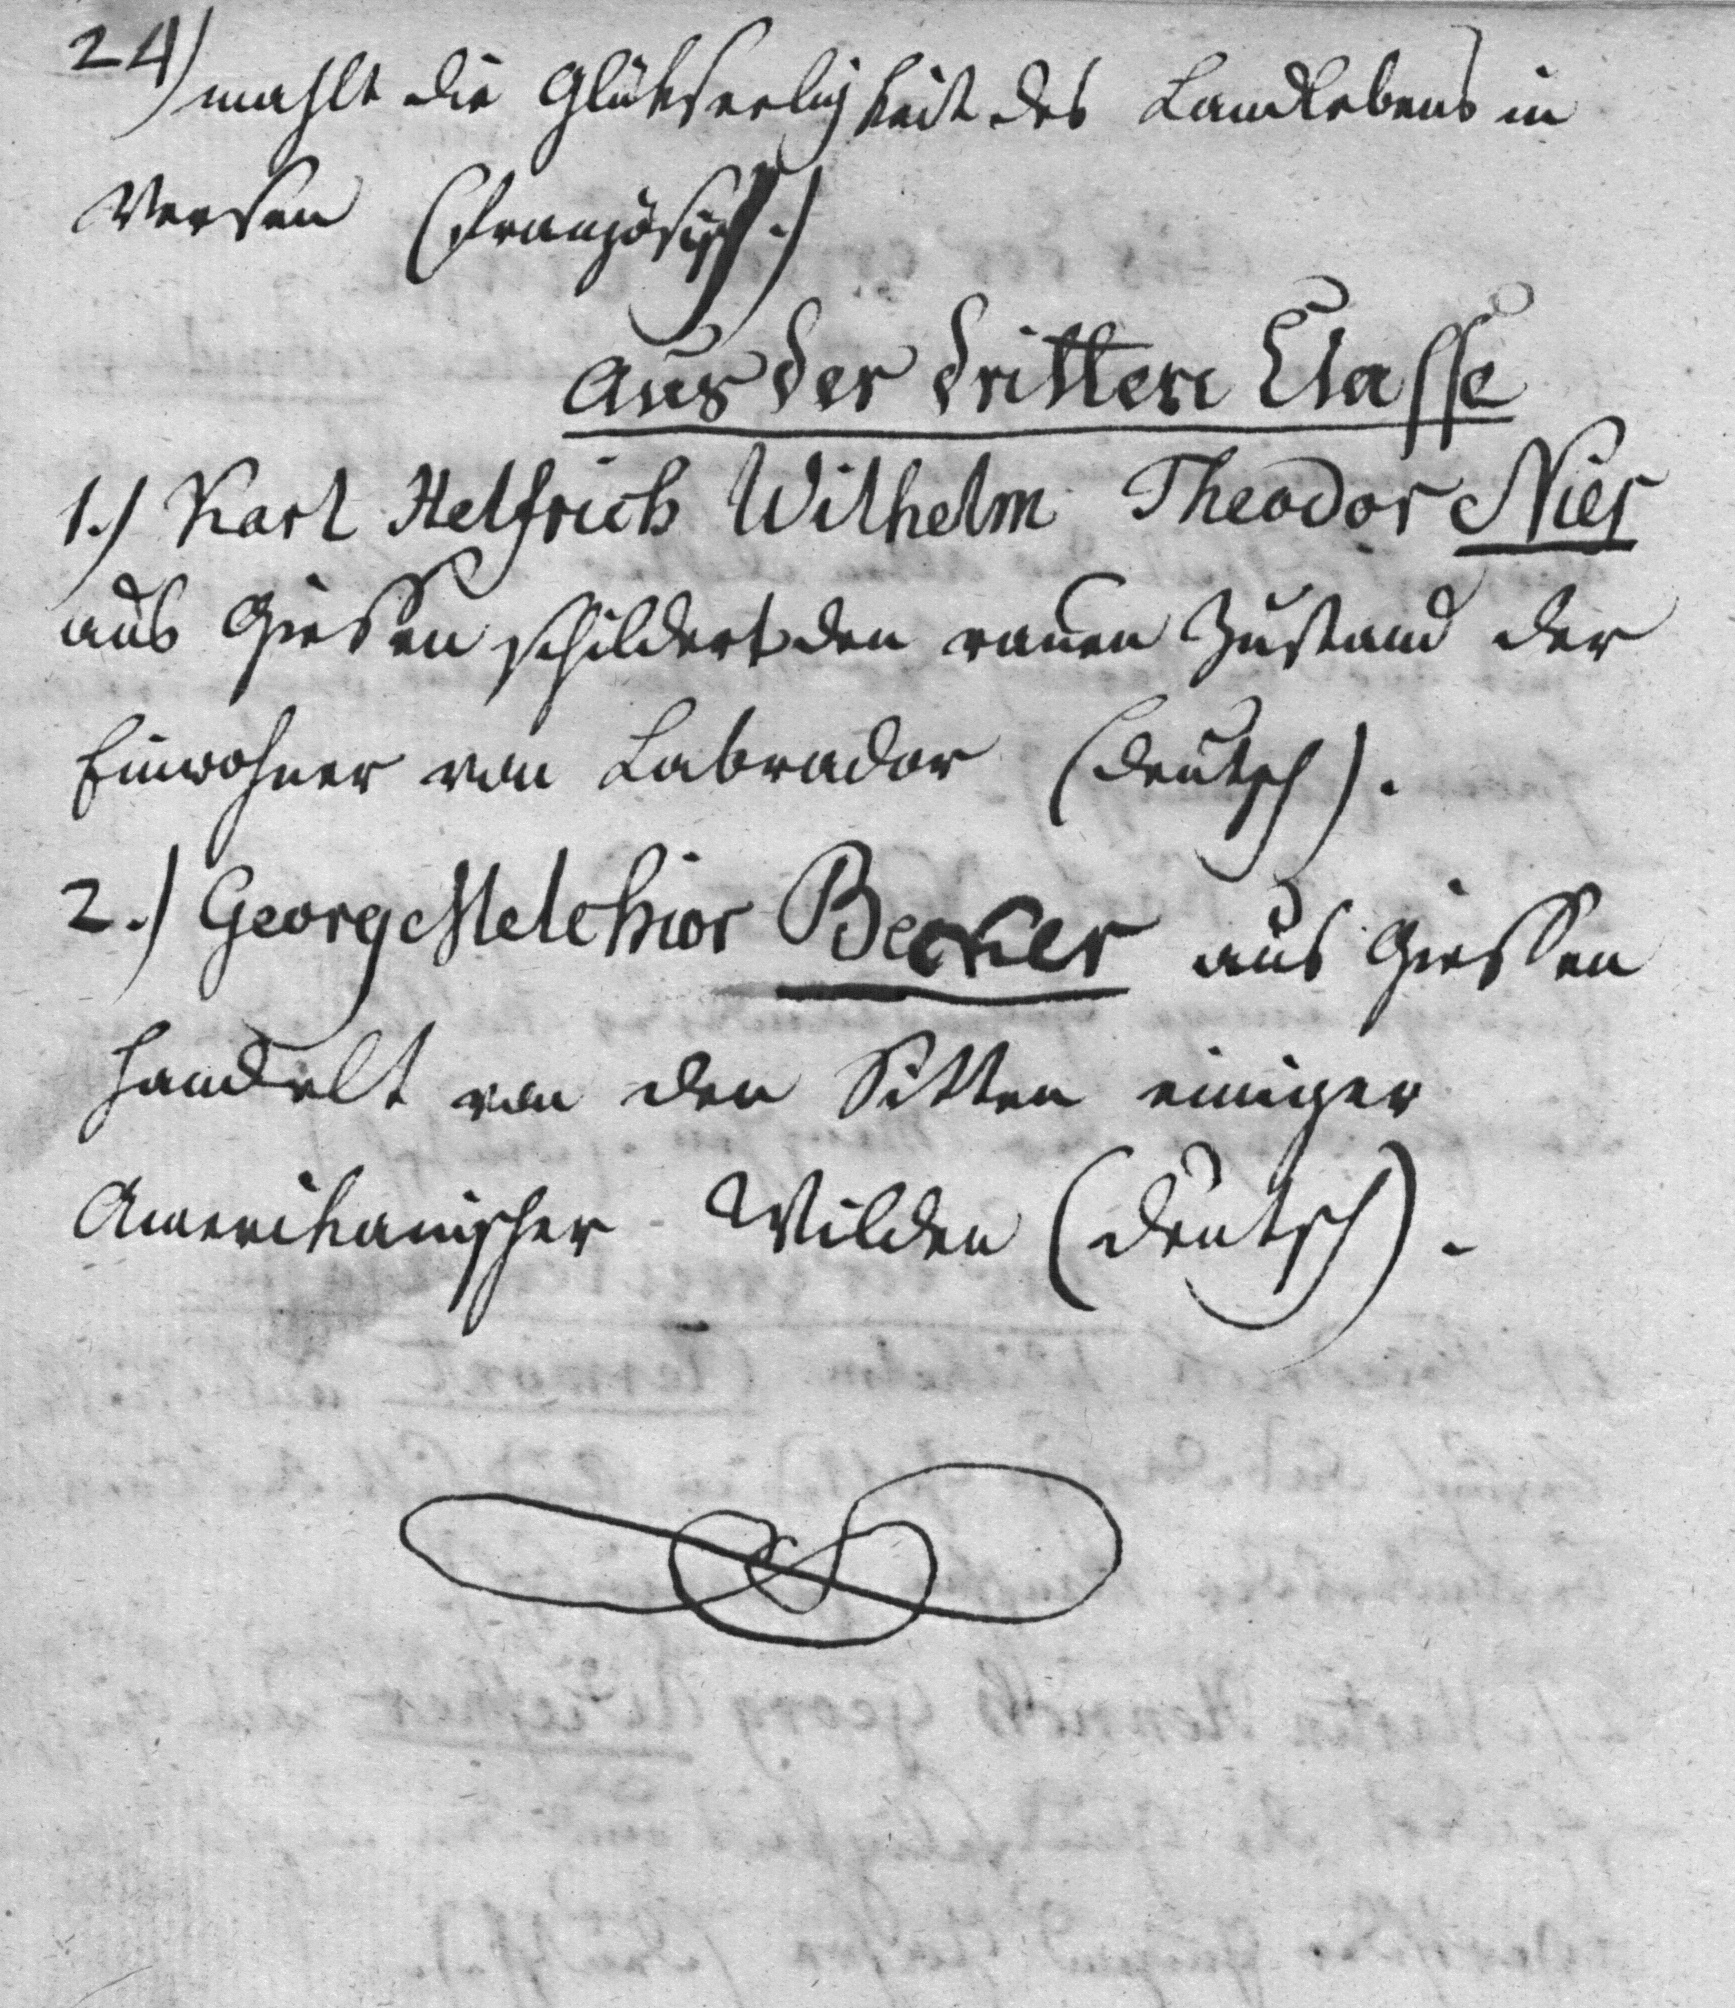 24) mahlt die Glükseeligkeit des Landlebens in
Versen (Französisch.)
Aus der dritten Classe
1.) Karl Helfrich Wilhelm Theodor Nies
aus Giessen schildert den rauen Zustand der
Einwohner von Labrador (deutsch).
2.) Georg Melchior Becker aus Giessen
handelt von den Sitten einiger
Amerikanischer Wilden (deutsch).